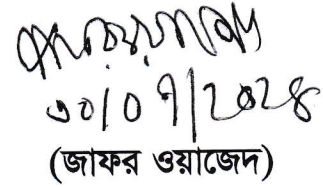 ৩০/০৭/২০২৪
(জাফর ওয়াজেদ)